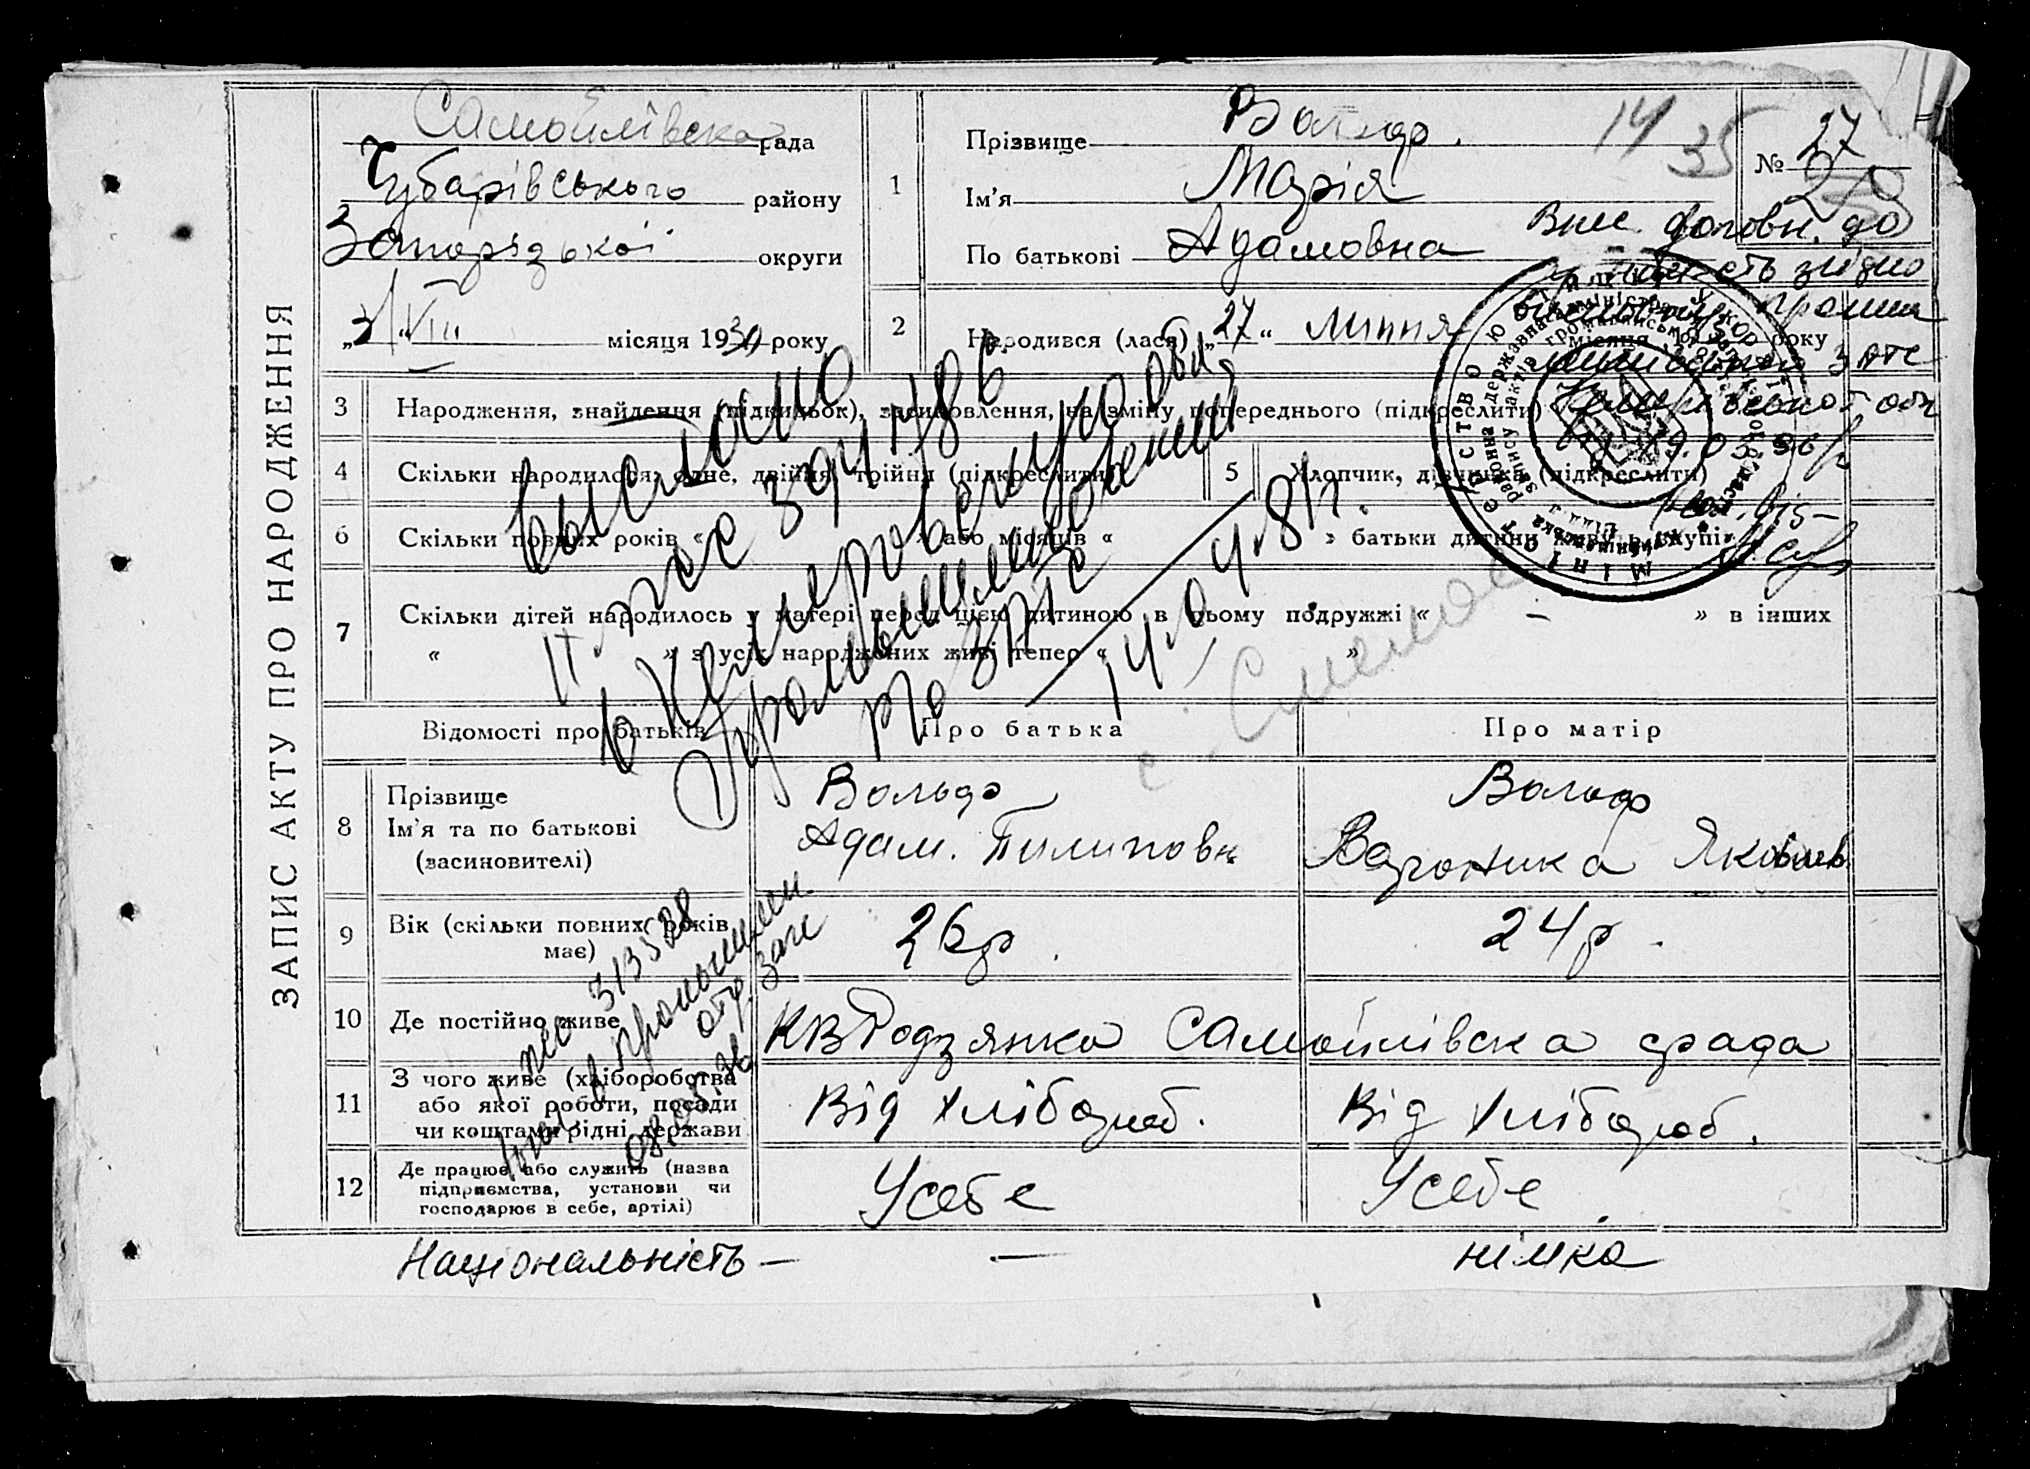 ЗАПИС АКТУ ПРО НАРОДЖЕННЯ
Самойлівска рада
Чубарівського району
Запорізької округи
„3“ VIII місяця 1930 року
1
Прізвище Вольф.
Ім'я Марія
По батькові Адамовна
14 35
№ 27
28
2 Народився (лася) „27“ липня місяця року
Внес. доповн. до
згідно
промыш
ЗАГС
Кемеровської обл
3 Народження, знайдення (підкидьок), засиновлення, на зміну попереднього (підкреслити)
4 Скільки народилося: одне, двійня, трійня (підкреслити)
5 Хлопчик, дівчинка (підкреслити)
6 Скільки повних років « » або місяців « » батьки дитини живуть вкупі
7 Скільки дітей народилось у матері перед цією дитиною в цьому подружжі « – » в інших
« » з усіх народжених живі тепер « »
выслано
п. рес 394486
в Кемеровскую обл.
Промышленовский
р/о ЗАГС
14.04.81г.
Відомості про батьків
Про батька
Про матір
8 Прізвище
Ім'я та по батькові
(засиновителі)
Вольф
Адам. Пилиповн
Вольф
Вероника Яковлев.
9 Вік (скільки повних років має)
26р.
24р.
10 Де постійно живе
КВ Родзянко Самойлівска рада
11 З чого живе (хліборобства
або якої роботи, посади
чи коштами рідні, держави
Від хлібороб.
Від хлібороб.
12 Де працює, або служить (назва
підприємства, установи чи
господарює в себе, артілі)
Усебе
Усебе.
313528
в промышлен
отд. загс
08.05.96
Національність – — німка